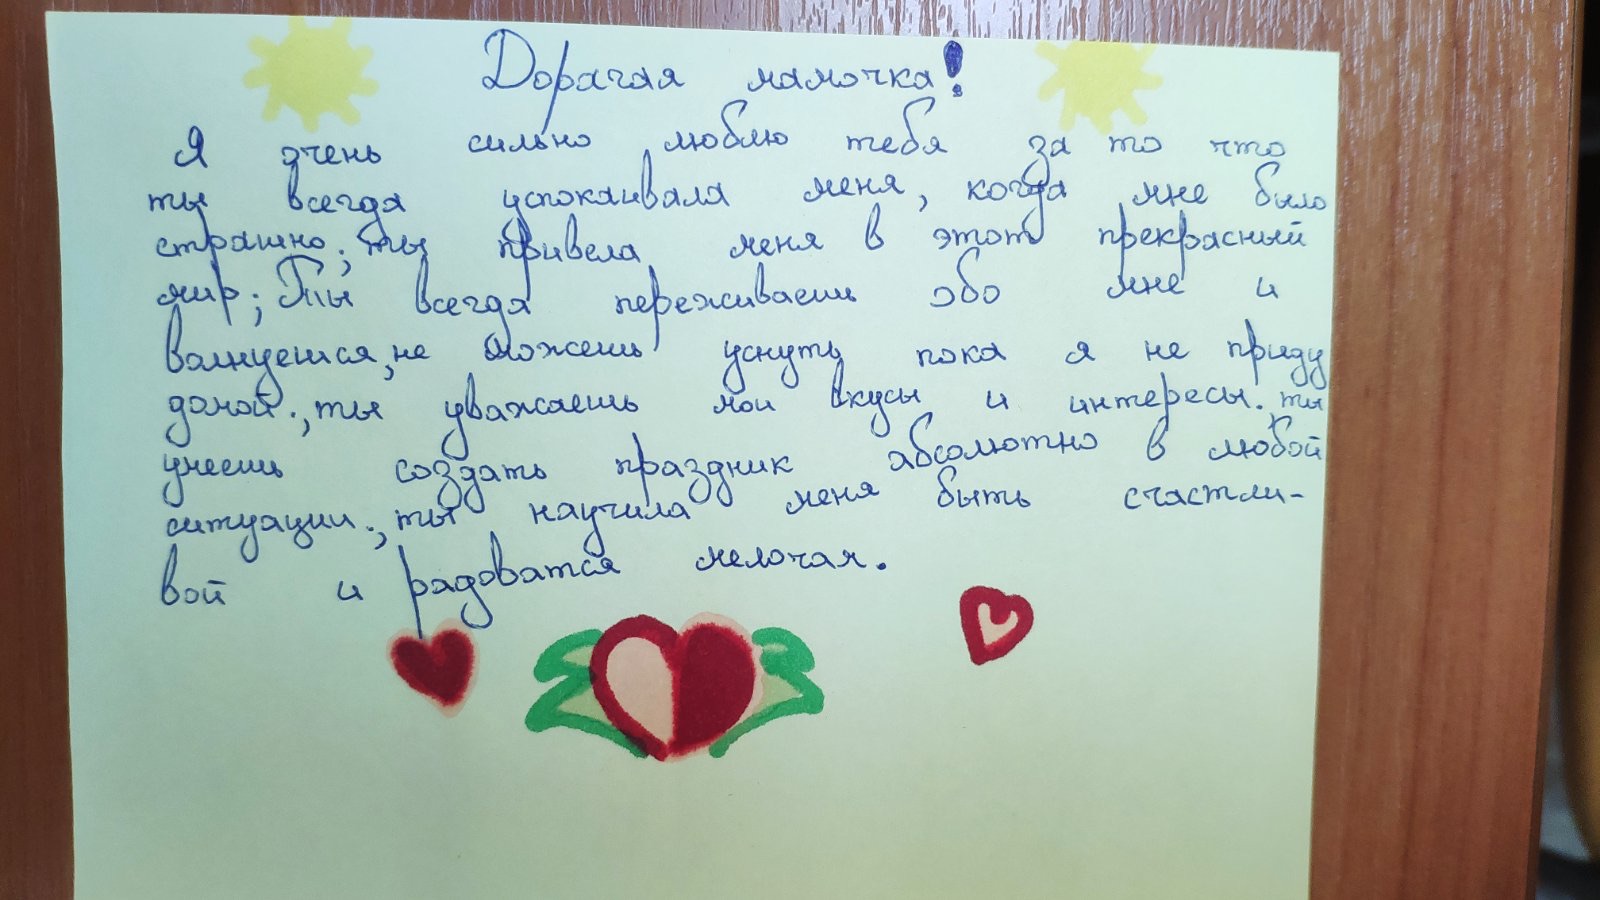 Дорагая мамочка!
Я очень сильно люблю тебя за то что
ты всегда успокаивала меня, когда мне было
страшно; ты привела меня в этот прекрасный
мир; Ты всегда переживаешь обо мне и
волнуешся, не можешь уснуть пока я не приду
домой.; ты уважаешь мои вкусы и интересы. ты
умеешь создать праздник абсолютно в любой
ситуации.; ты научила меня быть счастли-
вой и радоватся мелочам.